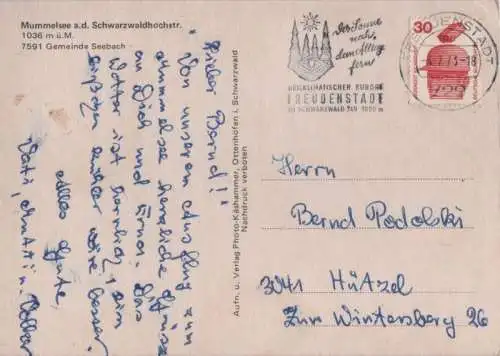 Mummelsee s.d. Schwarzwaldhochstr.
1036 m ü.M.
7591 Gemeinde Seebach
Lieber Bernd!
Von unserem Ausflug zum
Mummelsee herrliche Grüsse
an Dich und Erna. Das
Wetter ist herrlich, ein
bißchen kühler wäre besser.
Alles Gute,
Vati, Mutti u.
Aufn. u. Verlag Photo-Käshammer, Ottenhöfen i. Schwarzwald
Nachdruck verboten
Der Sonne
nah,
dem Alltag
fern
HEILKLIMATISCHER KURORT
FREUDENSTADT
IM SCHWARZWALD 740-1000 m
FREUDENSTADT
7.73-18
30
Herrn
Bernd Podolski
3041 Hützel
Zum Wintersberg 26